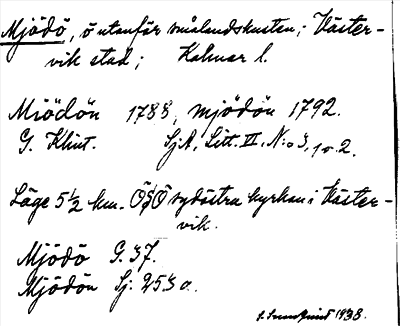 Mjödö, ö utanför smålandskusten; Väster-
vik stad; Kalmar l.
Miödön 1788, mjödön 1792.
G. Klint. SjA, Litt. II, N:o 3, 10.2.
Läge 5 1/2 km. ÖSÖ sydöstra kyrkan i Väster-
vik.
Mjödö G. 37.
Mjödön Sj: 253 a.
1938.